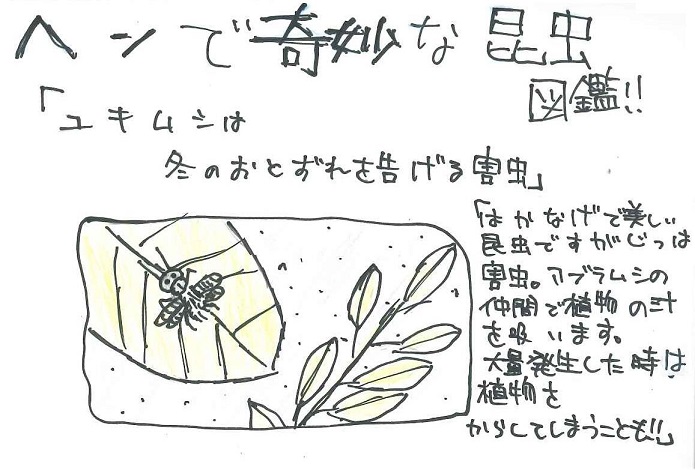 ヘンで奇妙な昆虫
図鑑!!
「ユキムシは
冬のおとずれを告げる害虫」
「はかなげで美しい
昆虫ですがじつは
害虫。アブラムシの
仲間で植物の汁
を吸います。
大量発生した時は
植物を
からしてしまうことも!!」